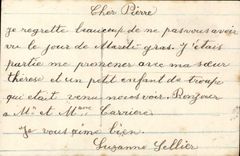 Cher Pierre
je regrette beaucoup de ne pas vous avoir
vu le jour de Mardi gras. J'étais
partie me promener avec ma sœur
thérèse et un petit enfant de troupe
qui était venu nous voir. Bonjour
a Mr et Mme Carrière
Je vous aime bien.
Suzanne Sellier